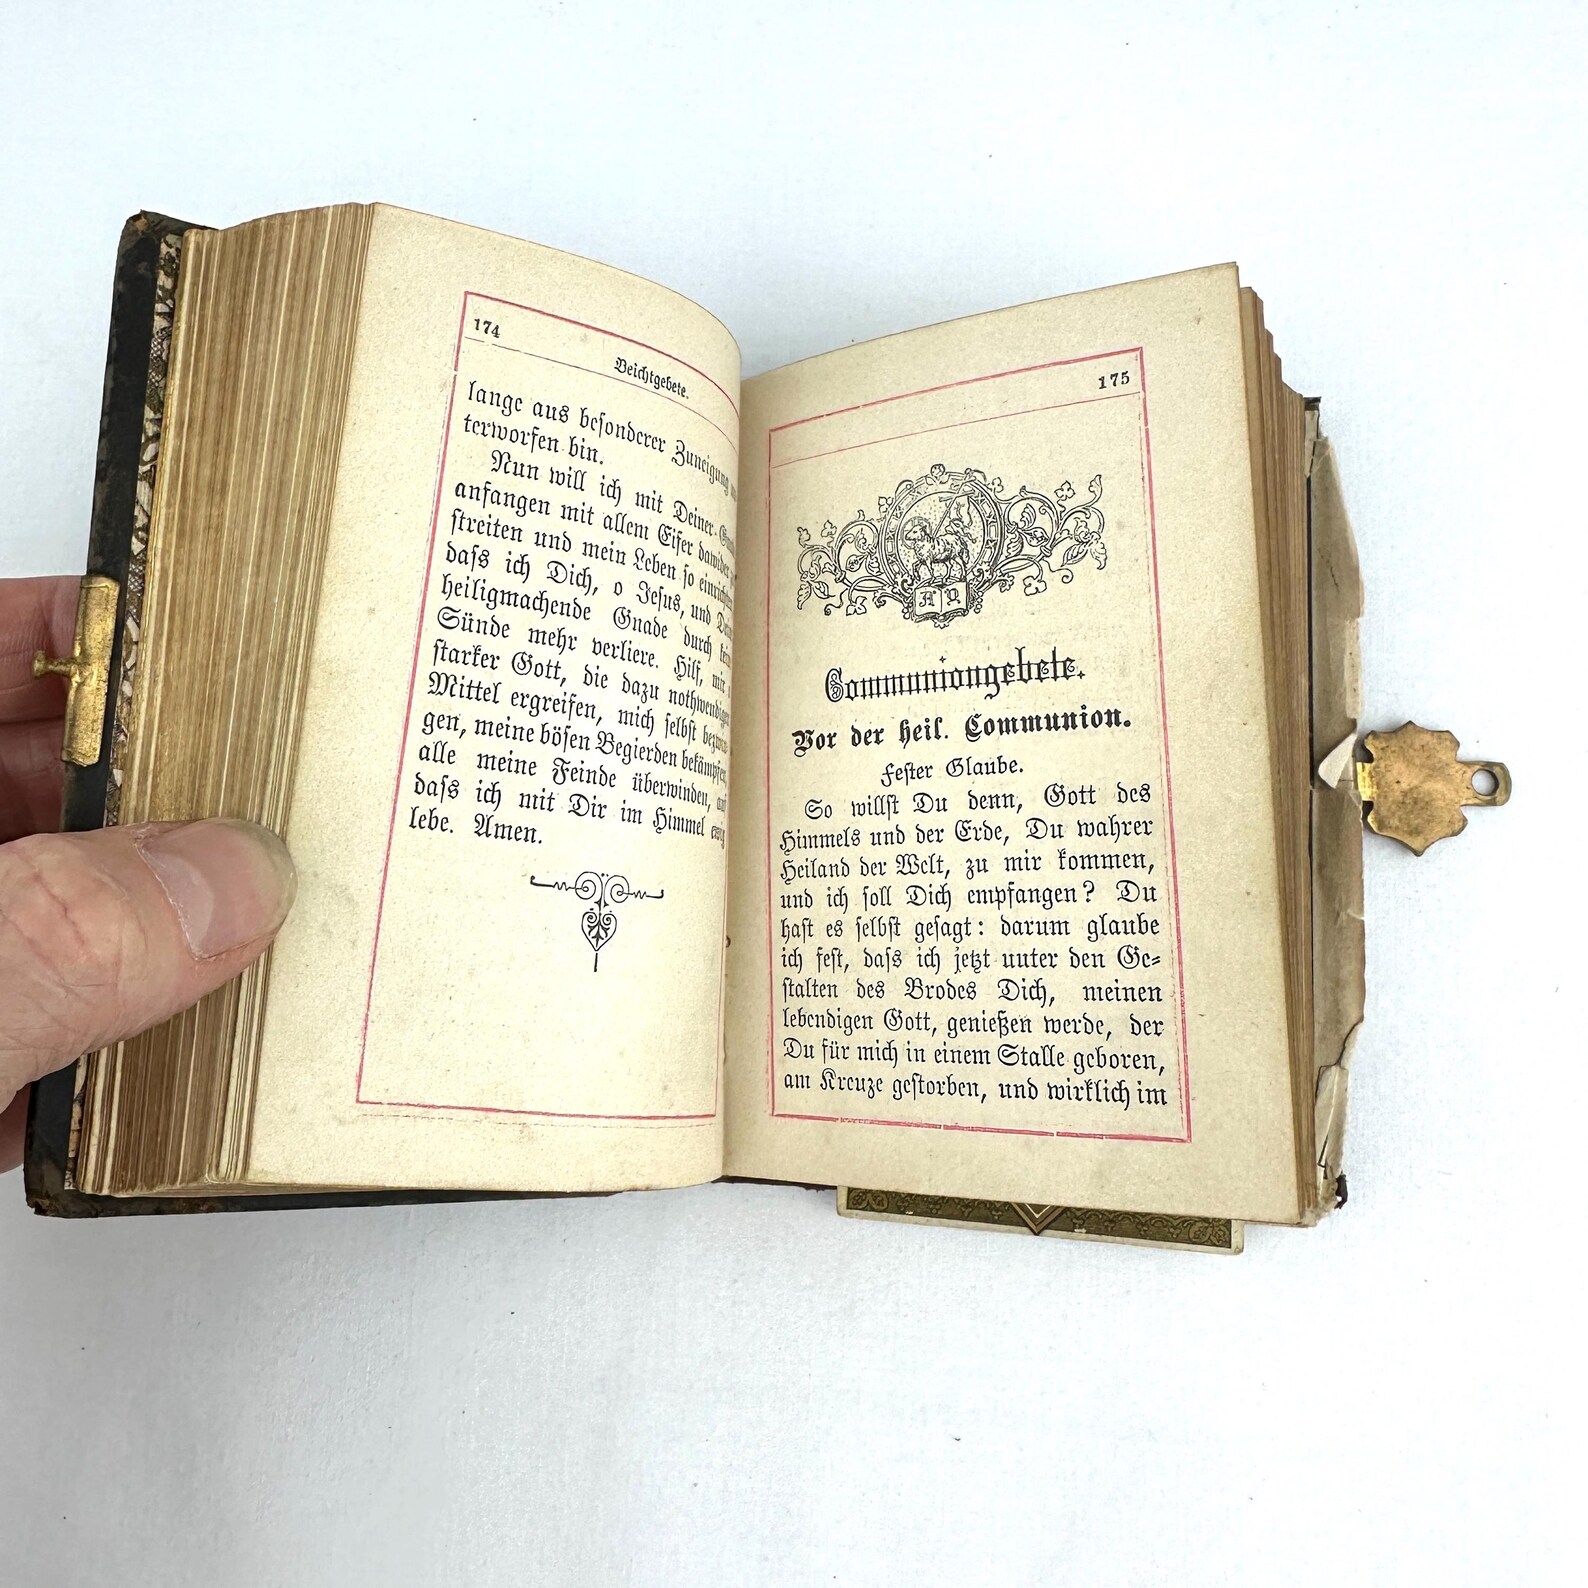 174
Beichtgebete.
lange aus besonderer Zuneigung
terworfen bin.
Nun will ich mit Deiner
anfangen mit allem Eifer dawider
streiten und mein Leben so einrichten
daſs ich Dich, o Jesus, und
heiligmachende Gnade durch
Sünde mehr verliere. Hilf, mir
starker Gott, die dazu nothwendigen
Mittel ergreifen, mich selbst bezwin-
gen, meine bösen Begierden bekämpfen,
alle meine Feinde überwinden,
daſs ich mit Dir im Himmel ewig
lebe. Amen.
175
Communiongebete.
Vor der heil. Communion.
Fester Glaube.
So willst Du denn, Gott des
Himmels und der Erde, Du wahrer
Heiland der Welt, zu mir kommen,
und ich soll Dich empfangen? Du
hast es selbst gesagt: darum glaube
ich fest, daſs ich jetzt unter den Ge-
stalten des Brodes Dich, meinen
lebendigen Gott, genießen werde, der
Du für mich in einem Stalle geboren,
am Kreuze gestorben, und wirklich im